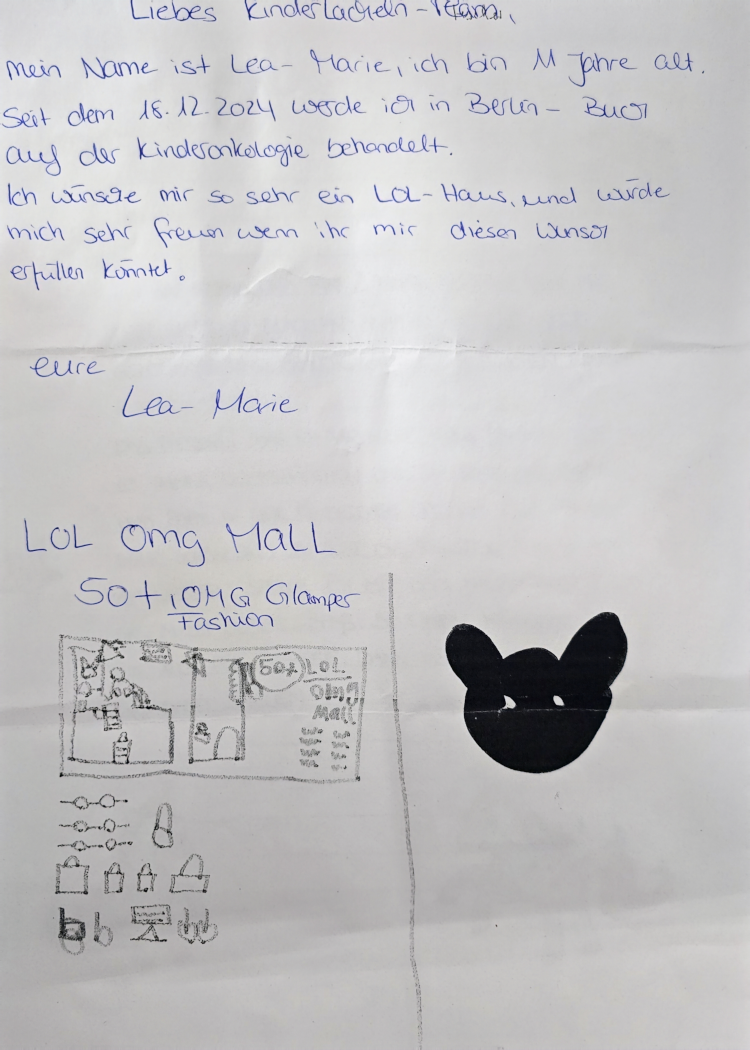 Liebes Kinderlächeln-Team,
mein Name ist Lea-Marie, ich bin 11 Jahre alt.
Seit dem 18.12.2024 werde ich in Berlin-Buch
auf der Kinderonkologie behandelt.
Ich wünsche mir so sehr ein LOL-Haus, und würde
mich sehr freun wenn ihr mir diesen Wunsch
erfüllen könntet.
eure
Lea-Marie
LOL OMG MALL
50+ OMG Glamper
Fashion
50+ LOL
OMG
Mall